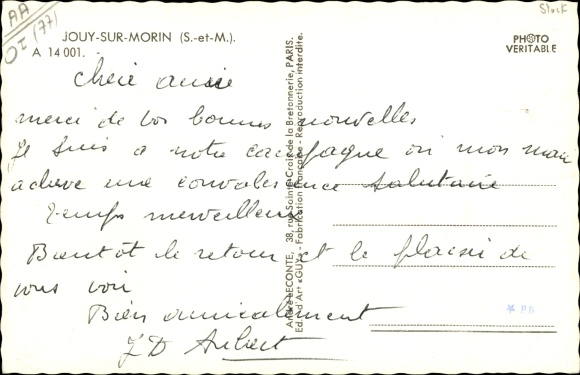 AA
OI (77)
Stock
JOUY-SUR-MORIN (S.-et-M.).
A 14 001.
PHOTO
VERITABLE
Chère amie
merci de vos bonnes nouvelles
Je suis à notre campagne où mon mari
achève une convalescence salutaire
Temps merveilleux
Bientôt le retour et le plaisir de
vous voir
Bien amicalement
JD Aubert
André LECONTE, 38, rue Sainte-Croix de la Bretonnerie, PARIS.
Ed. d'Art «GUY» - Fabrication Française - Reproduction interdite.